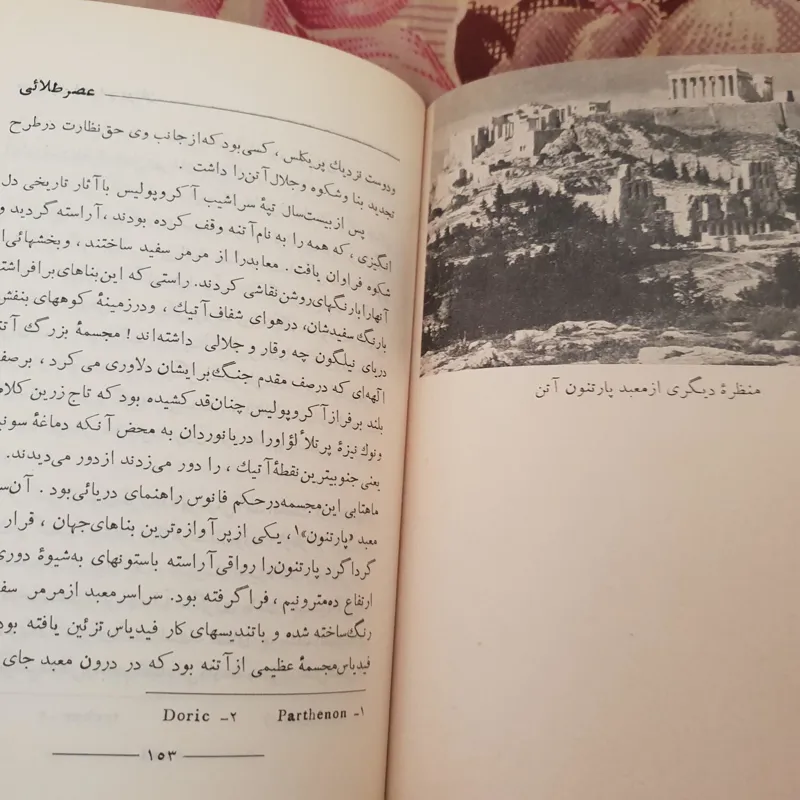 عصر طلائی
ودوست نزدیك پریکلس ، کسی بود که از جانب وی حق نظارت در طرح
تجدید بنا وشکوه وجلال آتن را داشت .
پس از بیست سال تپهٔ سراشیب آکروپولیس با آثار تاریخی دل
انگیزی ، که همه را به نام آتنه وقف کرده بودند ، آراسته گردید و
شکوه فراوان یافت . معابد را از مرمر سفید ساختند ، و بخشهائی از
آنها را با رنگهای روشن نقاشی کردند. راستی که این بناهای برافراشته
با رنگ سفیدشان، در هوای شفاف آتیك ، ودر زمینهٔ کوههای بنفش
دریای نیلگون چه وقار و جلالی داشته‌اند ! مجسمهٔ بزرگ آتنه
الهه‌ای که در صف مقدم جنگ برایشان دلاوری می کرد ، بر صف
بلند بر فراز آکروپولیس چنان قد کشیده بود که تاج زرین کلاه
ونوك نیزهٔ پر تلألؤ او را دریانوردان به محض آنکه دماغهٔ سونی
یعنی جنوبیترین نقطهٔ آتیك ، را دور می‌زدند از دور می‌دیدند.
ماهتابی این مجسمه در حکم فانوس راهنمای دریائی بود . آن س
معبد «پارتنون»۱ ، یکی از پر آوازه‌ترین بناهای جهان ، قرار
گرداگرد پارتنون را رواقی آراسته با ستونهای به شیوهٔ دوری
ارتفاع ده مترونیم ، فرا گرفته بود. سراسر معبد از مرمر سفید
رنگ ساخته شده و با تندیسهای کار فیدیاس تزئین یافته بود
فیدیاس مجسمهٔ عظیمی از آتنه بود که در درون معبد جای
۱ـ Parthenon ۲ـ Doric
۱۵۳
منظرهٔ دیگری از معبد پارتنون آتن